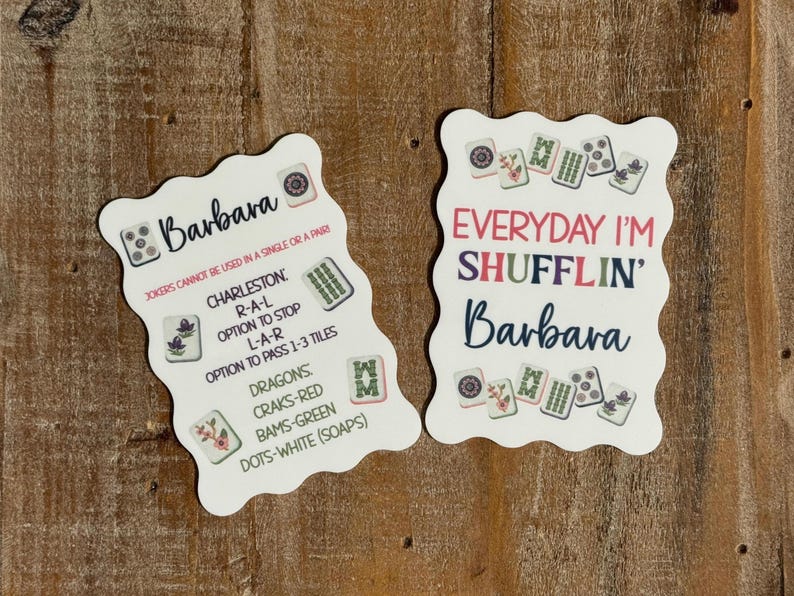 Barbara
JOKERS CANNOT BE USED IN A SINGLE OR A PAIR!
CHARLESTON:
R-A-L
OPTION TO STOP
L-A-R
OPTION TO PASS 1-3 TILES
DRAGONS:
CRAKS-RED
BAMS-GREEN
DOTS-WHITE (SOAPS)
EVERYDAY I'M
SHUFFLIN'
Barbara